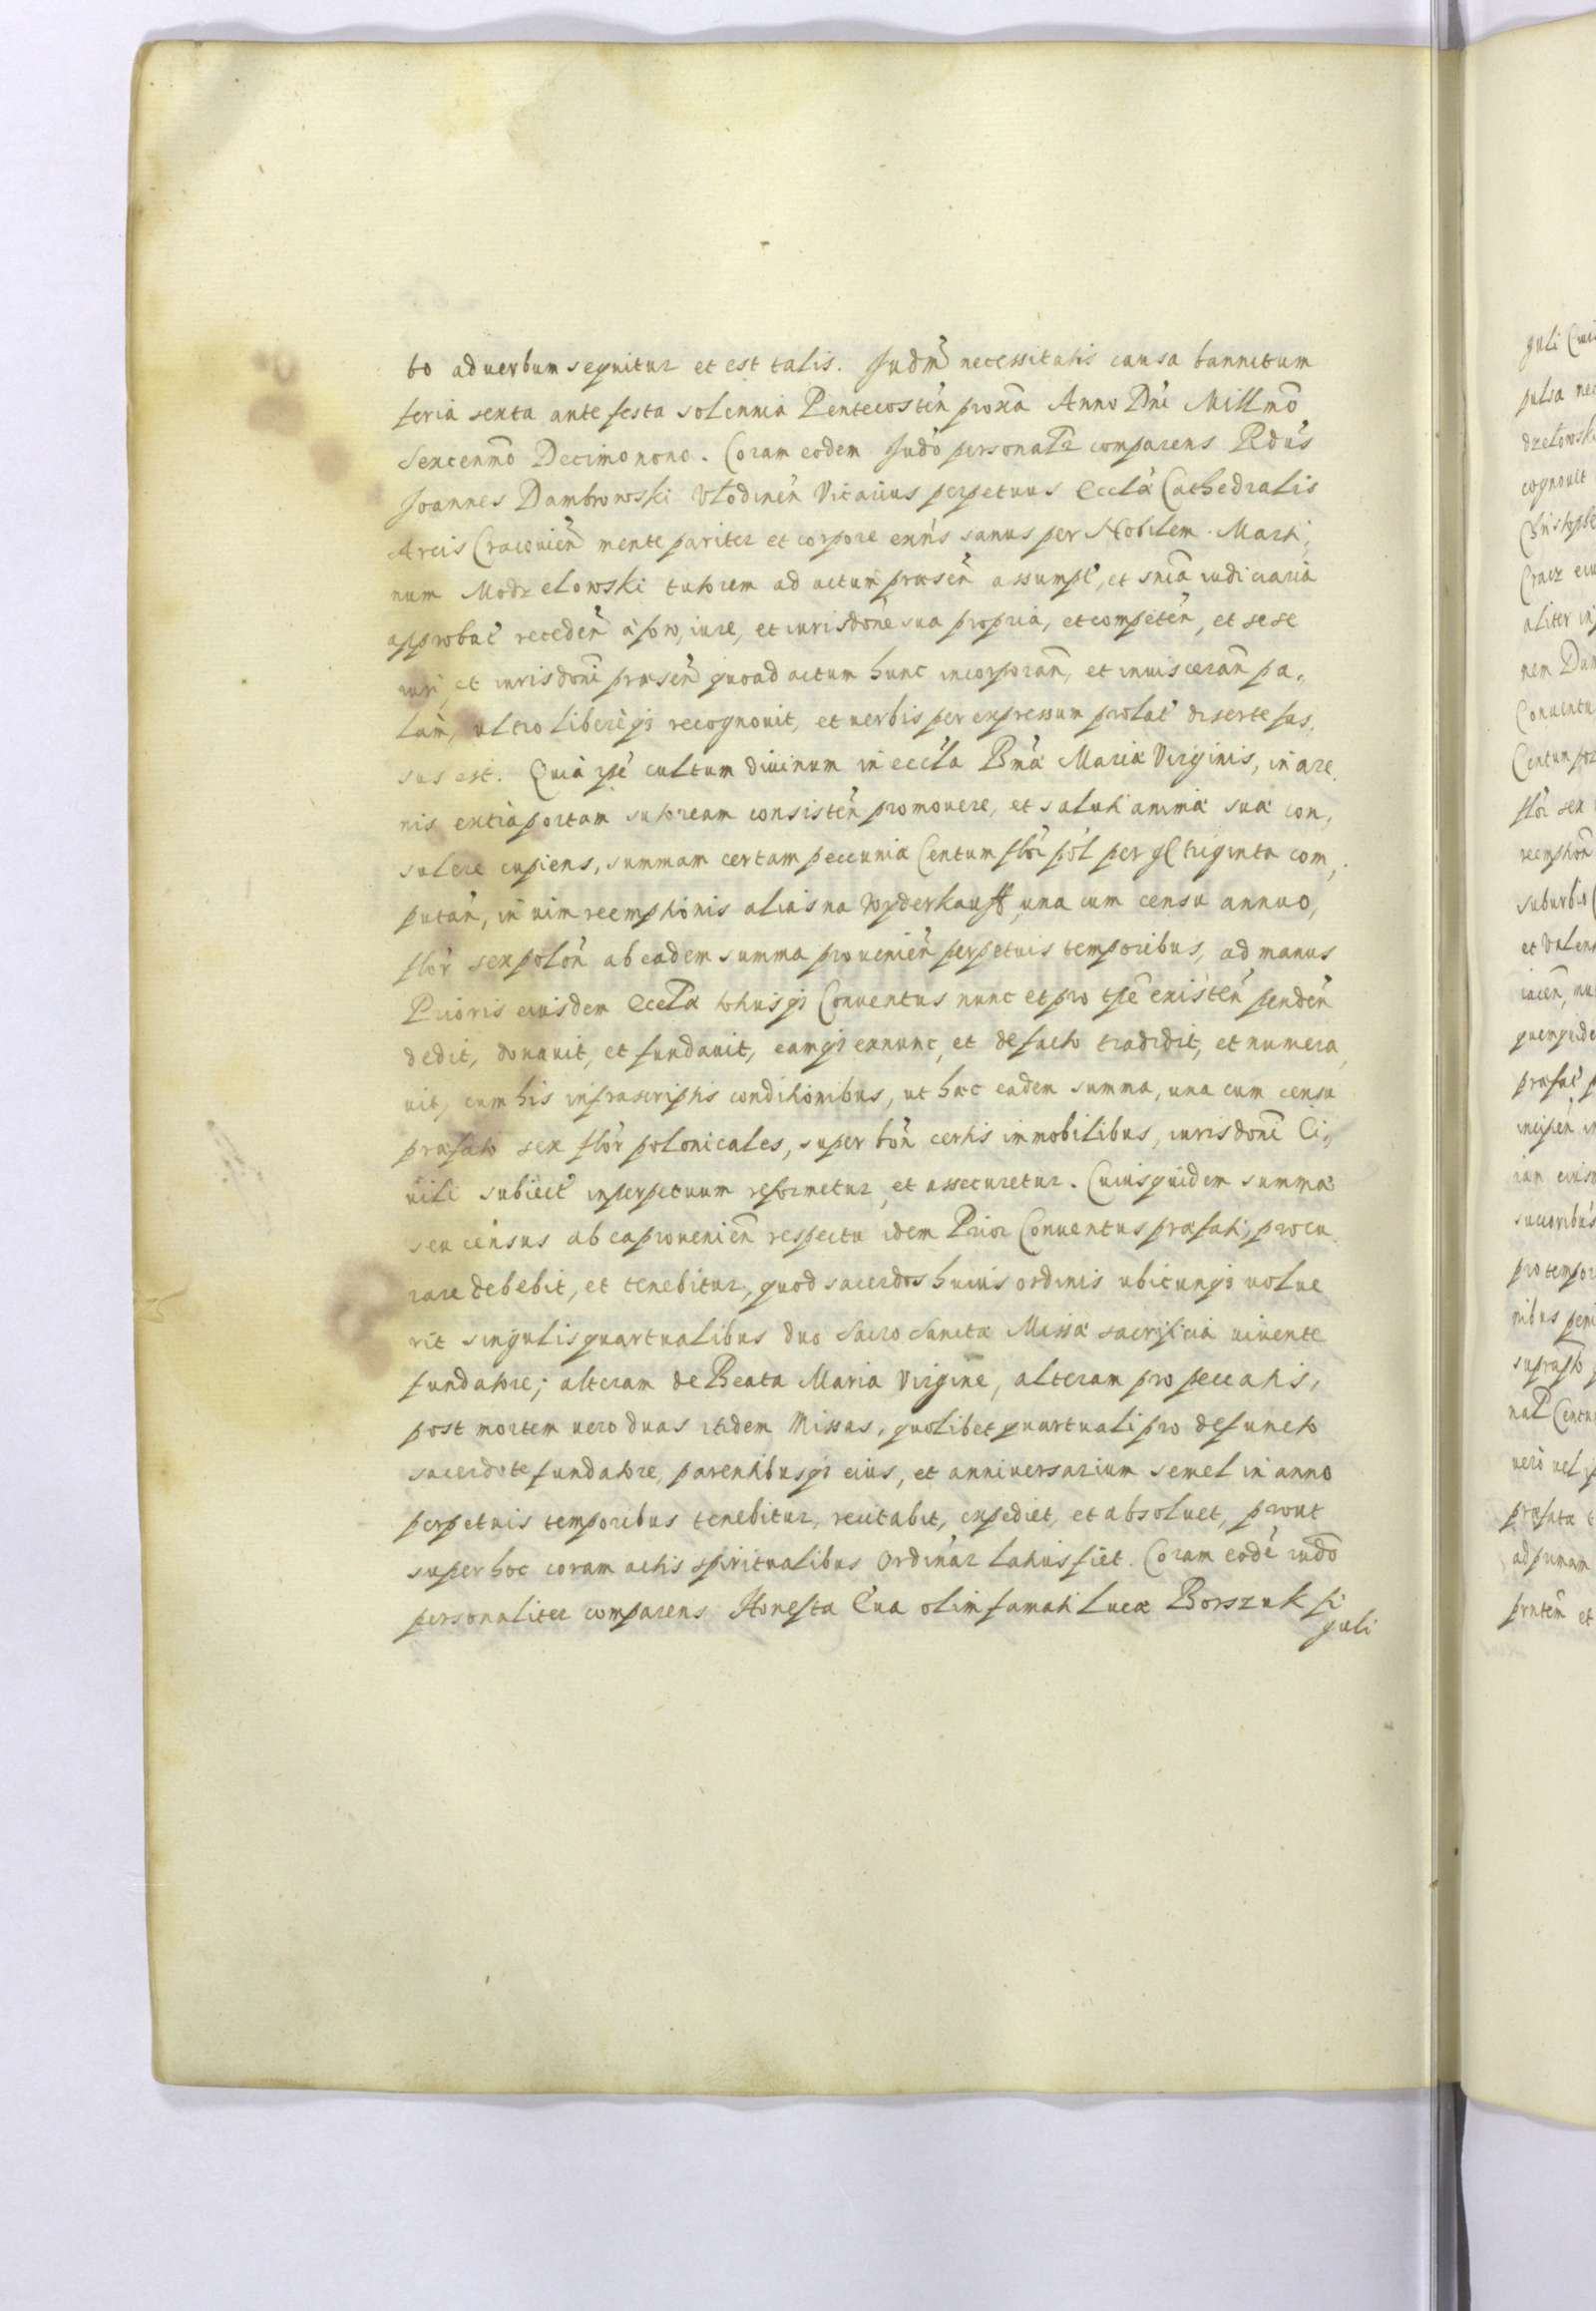 bo ad verbum sequitur et est talis. Judm̃ necessitatis causa bannitum
feria sexta ante festa solennia Pentecosten̄ proxã Anno Dn̄i Millm̃o
Sexcenm̃o Decimonono. Coram eodem Judõ personalr̃ comparens Rdūs
Joannes Dambrowski Vlodimen̄ Vicarius perpetuus Ecclæ Cathedralis
Arcis Cracovien̄ mente pariter et corpore exñs sanus per Nobilem Marti,
num Modrzelowski tutorem ad actum præsen̄ assumpt̄, et sñia iudiciaria
approbat̄ receden̄ à foro, iure, et iurisdõne sua propria, et competen̄, et sese
iuri, et iurisdõni præsen̄ quoad actum hunc incorporan̄, et inuisceran̄ pa„
lam, ultro libereq3 recognouit, et uerbis per expressum prolat̄ diserte fas,
sus est. Quia ipe cultum diuinum in eccla Bmæ Mariæ Virginis, in are
nis extra portam sutoream consisten̄ promouere, et saluti animæ suæ con,
sulere cupiens, summam certam peccuniæ Centum flor̄ pol̄ per gl̃ triginta com,
putan̄, in uim reemptionis alias na wyderkauff, una cum censu annuo,
flor̄ sex polon̄ ab eadem summa prouenien̄ perpetuis temporibus, ad manus
Prioris eiusdem Ecclæ totiusq3 Conuentus nunc et pro tp̄e existen̄ penden̄
dedit, donauit, et fundauit, eamq3 exnunc, et de facto tradidit, et numera,
uit, cum his infrascriptis conditionibus, ut hæc eadem summa, una cum censu
præfato sex flor̄ polonicales, super bon̄ certis immobilibus, iurisdõni Ci„
uili subiect̄ inperpetuum reformetur, et assecuretur. Cuiusquidem summæ
seu census ab ea prouenien̄ respectu idem Prior Conuentus præfati, procu
rare debebit, et tenebitur, quod sacerdos huius ordinis ubicunq3 uolue
rit singulis quartualibus duo Sacro Sanctæ Missæ sacrificia uiuente
fundatore; alteram de Beata Maria Virgine, alteram pro peccatis,
post mortem uero duas itidem Missas, quolibet quartuali pro defuncto
sacerdote fundatore, parentibusq3 eius, et anniuersarium semel in anno
perpetuis temporibus tenebitur, recitabit, expediet, et absoluet, prout
super hoc coram actis spiritualibus Ordinar̄ latius fiet. Coram eodē iudõ
personaliter comparens Honesta Eua olim famati Lucæ Borszuk fi
guli